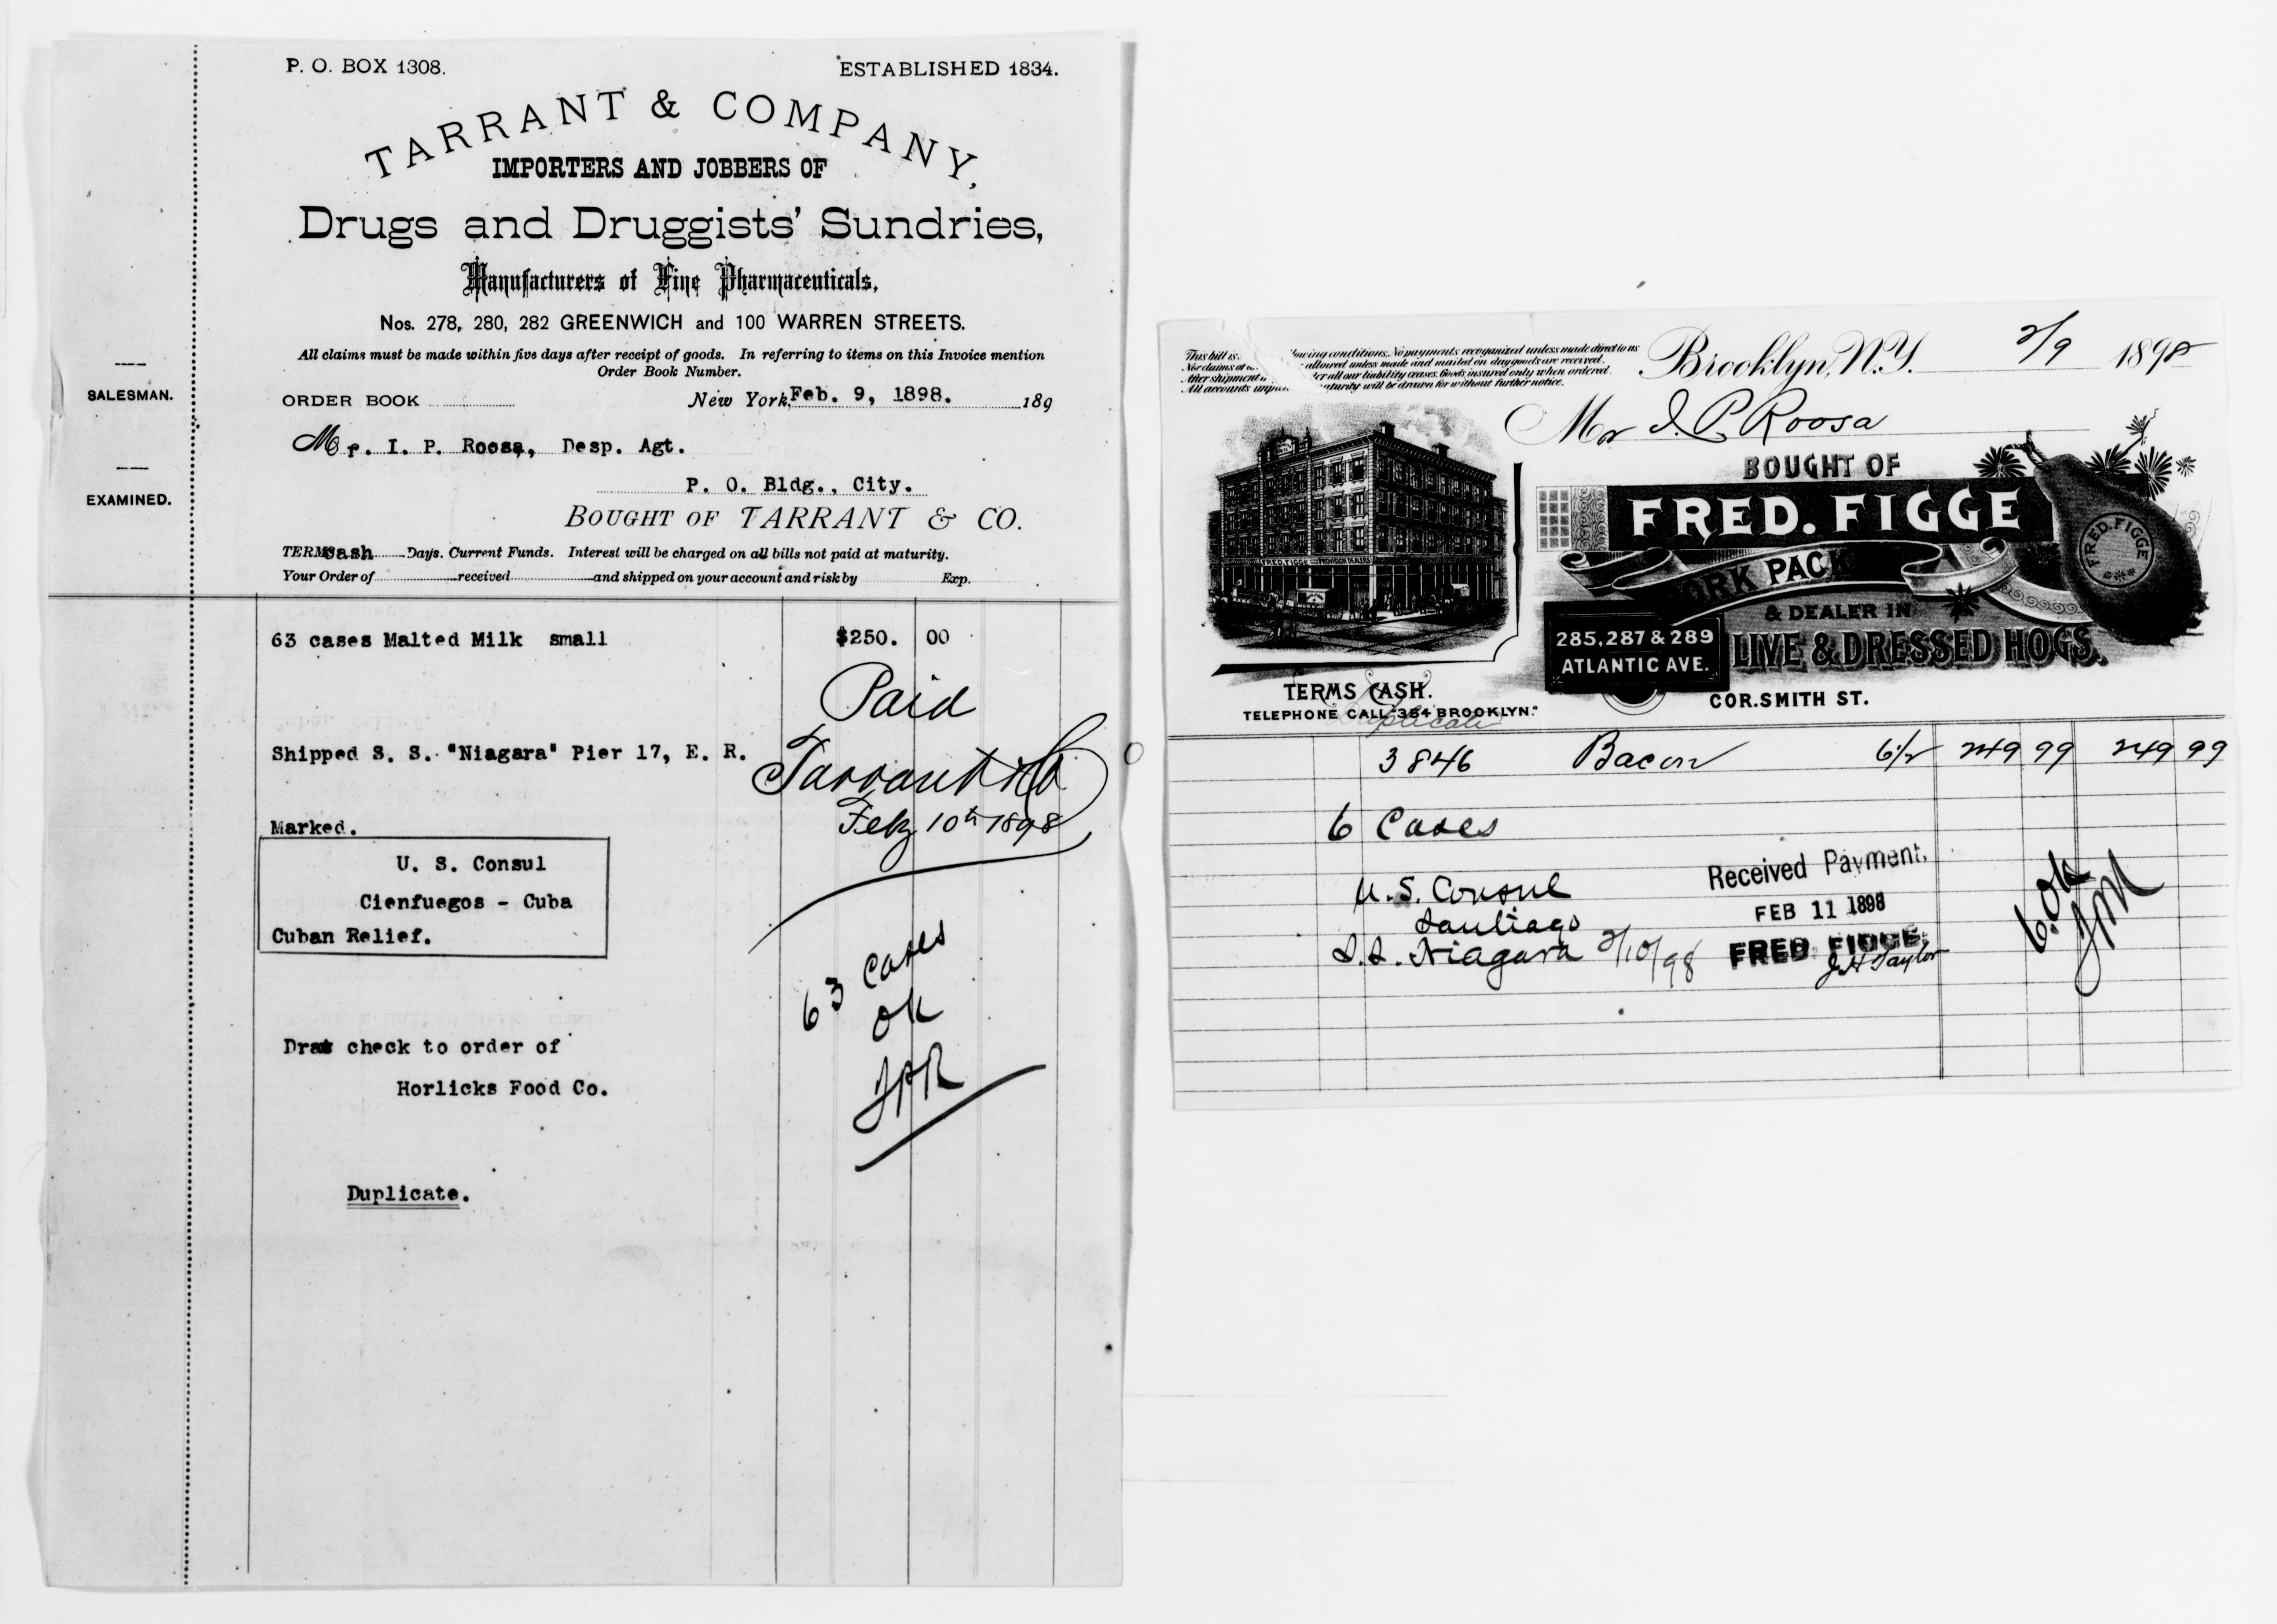 P. O. BOX 1308.
ESTABLISHED 1834.
TARRANT & COMPANY,
IMPORTERS AND JOBBERS OF
Drugs and Druggists' Sundries,
Manufacturers of Fine Pharmaceuticals,
Nos. 278, 280, 282 GREENWICH and 100 WARREN STREETS.
All claims must be made within five days after receipt of goods. In referring to items on this Invoice mention
Order Book Number.
SALESMAN.
ORDER BOOK
New York, Feb. 9, 1898. 189
Mr. I. P. Roosa, Desp. Agt.
EXAMINED.
P. O. Bldg., City.
BOUGHT OF TARRANT & CO.
TERMS Cash Days. Current Funds. Interest will be charged on all bills not paid at maturity.
Your Order of received and shipped on your account and risk by Exp.
63 cases Malted Milk small $250. 00
Paid
Shipped S. S. "Niagara" Pier 17, E. R.
Tarrant & Co
Feby 10th 1898
Marked.
U. S. Consul
Cienfuegos - Cuba
Cuban Relief.
63 cases
OK
IPR
Draw check to order of
Horlicks Food Co.
Duplicate.
This bill is
lowing conditions. No payments recognized unless made direct to us
Nor claims
allowed unless made and mailed on day goods are received.
After shipment
all our liability ceases. Goods insured only when ordered.
All accounts
maturity will be drawn for without further notice.
Brooklyn, N.Y. 2/9 1898
Mr I. P. Roosa
BOUGHT OF
FRED. FIGGE
PORK PACK
& DEALER IN
LIVE & DRESSED HOGS.
FRED. FIGGE
FRED. FIGGE PROVISION DEALER
285, 287 & 289
ATLANTIC AVE.
COR. SMITH ST.
TERMS CASH.
TELEPHONE CALL "354 BROOKLYN."
Duplicate
3846 Bacon 6½ 249 99 249 99
6 Cases
U. S. Consul
Santiago
S. S. Niagara 2/10/98
Received Payment.
FEB 11 1898
FRED. FIGGE.
J. H. Taylor
6. OK